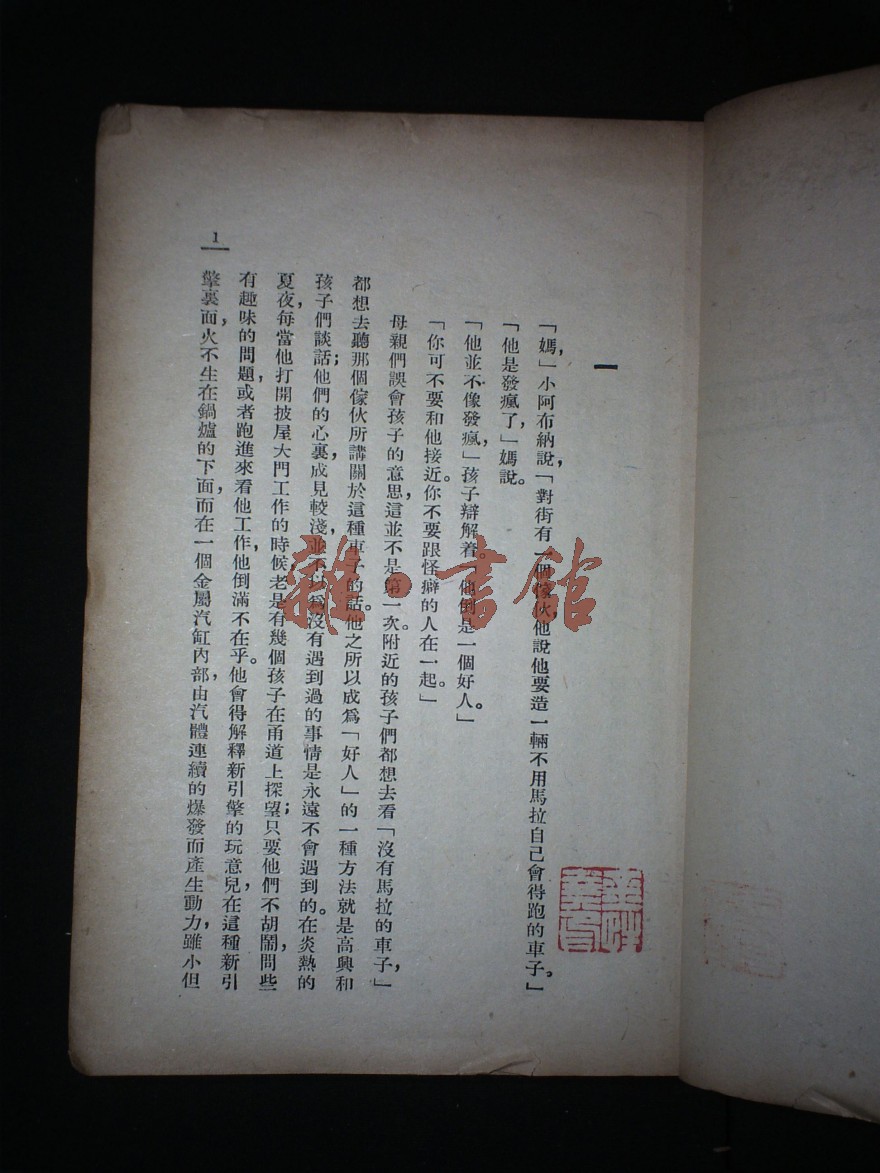 一
「媽，」小阿布納說，「對街有一個傢伙他說他要造一輛不用馬拉自己會得跑的車子。」
「他是發瘋了，」媽說。
「他並不像發瘋，」孩子辯解着。「他倒是一個好人。」
「你可不要和他接近。你不要跟怪癖的人在一起。」
母親們誤會孩子的意思，這並不是第一次。附近的孩子們都想去看「沒有馬拉的車子，」
都想去聽那個傢伙所講關於這種車子的話。他之所以成爲「好人」的一種方法就是高興和
孩子們談話；他們的心裏成見較淺，並不以爲沒有遇到過的事情是永遠不會遇到的。在炎熱的
夏夜，每當他打開披屋大門工作的時候老是有幾個孩子在甬道上探望；只要他們不胡鬧，問些
有趣味的問題，或者跑進來看他工作，他倒滿不在乎。他會得解釋新引擎的玩意兒，在這種新引
擎裏面，火不生在鍋爐的下面，而在一個金屬汽缸內部，由汽體連續的爆發而產生動力，雖小但
1
雜·書館